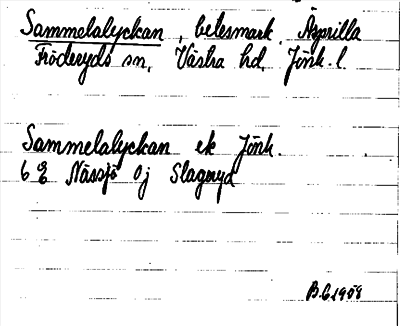 Sammelalyckan, betesmark, Äsprilla
Fröderyds sn, Västra hd, Jönk. l.
Sammelalyckan ek Jönk.
6 E Nässjö 0j Slageryd
B.G. 1958